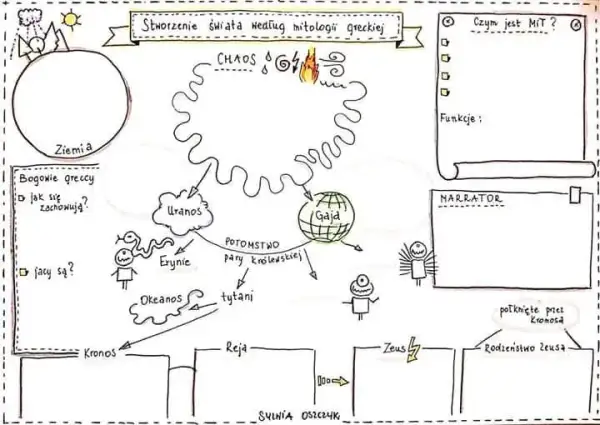 Stworzenie świata według mitologii greckiej
Czym jest MIT?
CHAOS
Funkcje:
Ziemia
Bogowie greccy
jak się
zachowują?
jacy są?
Uranos
Gaja
NARRATOR
POTOMSTWO
pary królewskiej
Erynie
Okeanos
tytani
połknięte przez
Kronosa
Kronos
Reja
Zeus
Rodzeństwo Zeusa
SYLWIA OSZCZYK